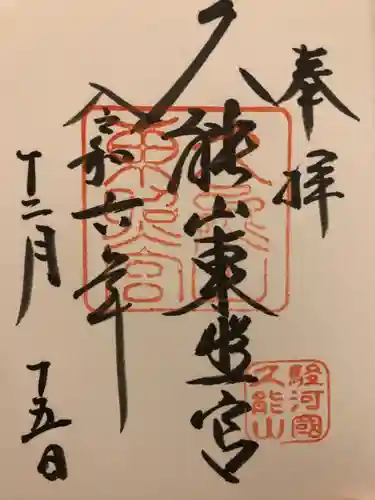 奉拝
久能山東照宮
令和六年
十二月 十五日
久能山東照宮
駿河國
久能山